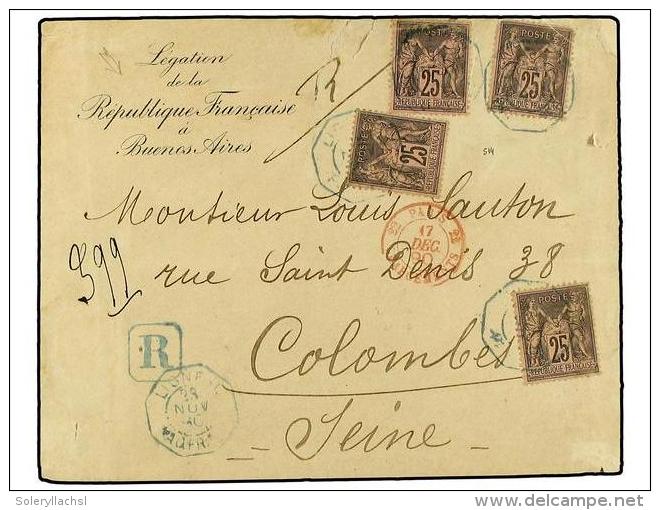 Légation
de la
République Française
à
Buenos Aires
R
POSTES
25
REPUBLIQUE FRANÇAISE
POSTES
25
REPUBLIQUE FRANÇAISE
POSTES
25
REPUBLIQUE FRANÇAISE
Monsieur Louis Santon
PARIS
17
DEC
rue Saint Denis 38
399
Colombes
POSTES
25
REPUBLIQUE FRANÇAISE
R
LIGNE
28
NOV
Seine
Soleryllachsl
© delcampe.net